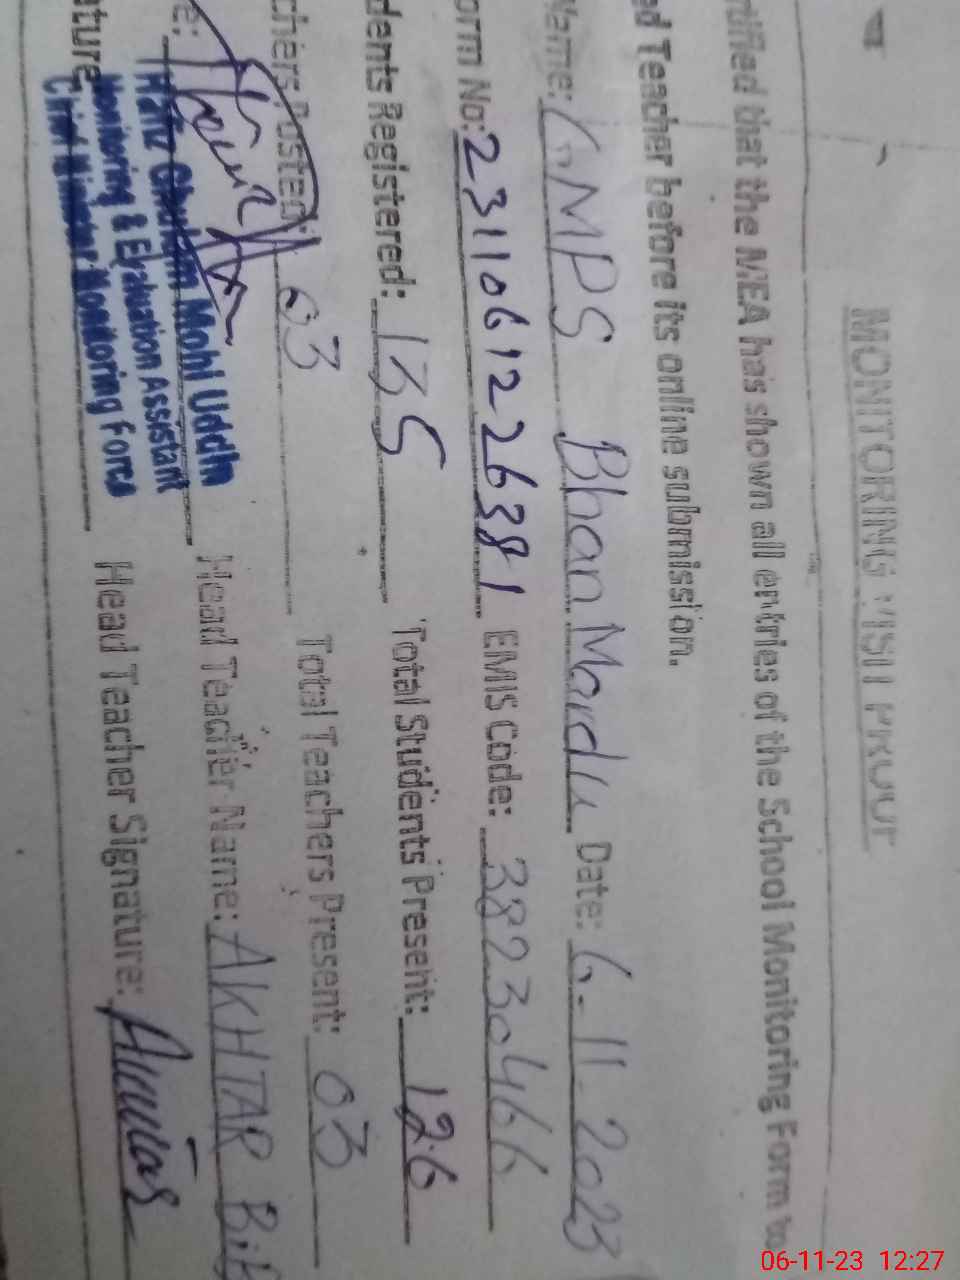 MONITORING VISIT PROOF
rtified that the MEA has shown all entries of the School Monitoring Form to
ed Teacher before its online submission.
Name: GMPS Bhan Mardu Date: 6-11-2023
orm No: 2311061226381 EMIS Code: 38230466
dents Registered: 135 Total Students Present: 126
chers Posted: 03 Total Teachers Present: 03
e: Hafiz Ghulam Mohi Uddin Head Teacher Name: AKHTAR Bib
Monitoring & Evaluation Assistant
ature Chief Minister Monitoring Force Head Teacher Signature:
06-11-23 12:27